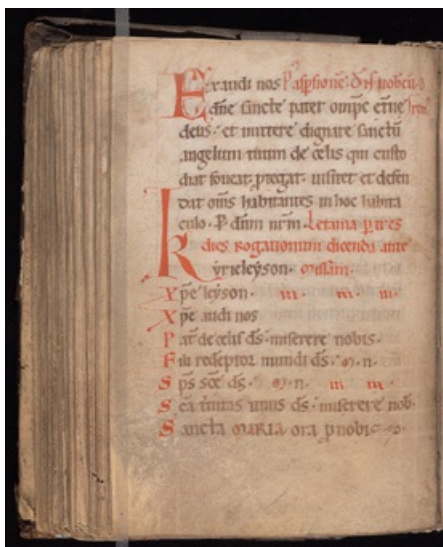 Exaudi nos P aspsionē. dn̄s uobcū.
dn̄e sancte pater omp̄s et̄ne
deus. et mittere dignare sanctū
angelum tuum de celis qui custo
diat foueat. ptegat. uisitet et defen
dat om̄s habitantes in hoc habita
culo. P. dn̄m nr̄m. Letania p tres
dies rogationum dicenda ante
Kyrieleyson. missam.
Xpē leyson. iii. iii. iii.
Xpē audi nos
Pat̄ de celis ds̄. miserere nobis.
Fili redēptor mundi ds̄. m. n.
Sp̄s sc̄e ds̄. m. n. iii iii
Sc̄a t̄nitas unus ds̄. miserere nob̄.
Sancta MARIA ora p nobis